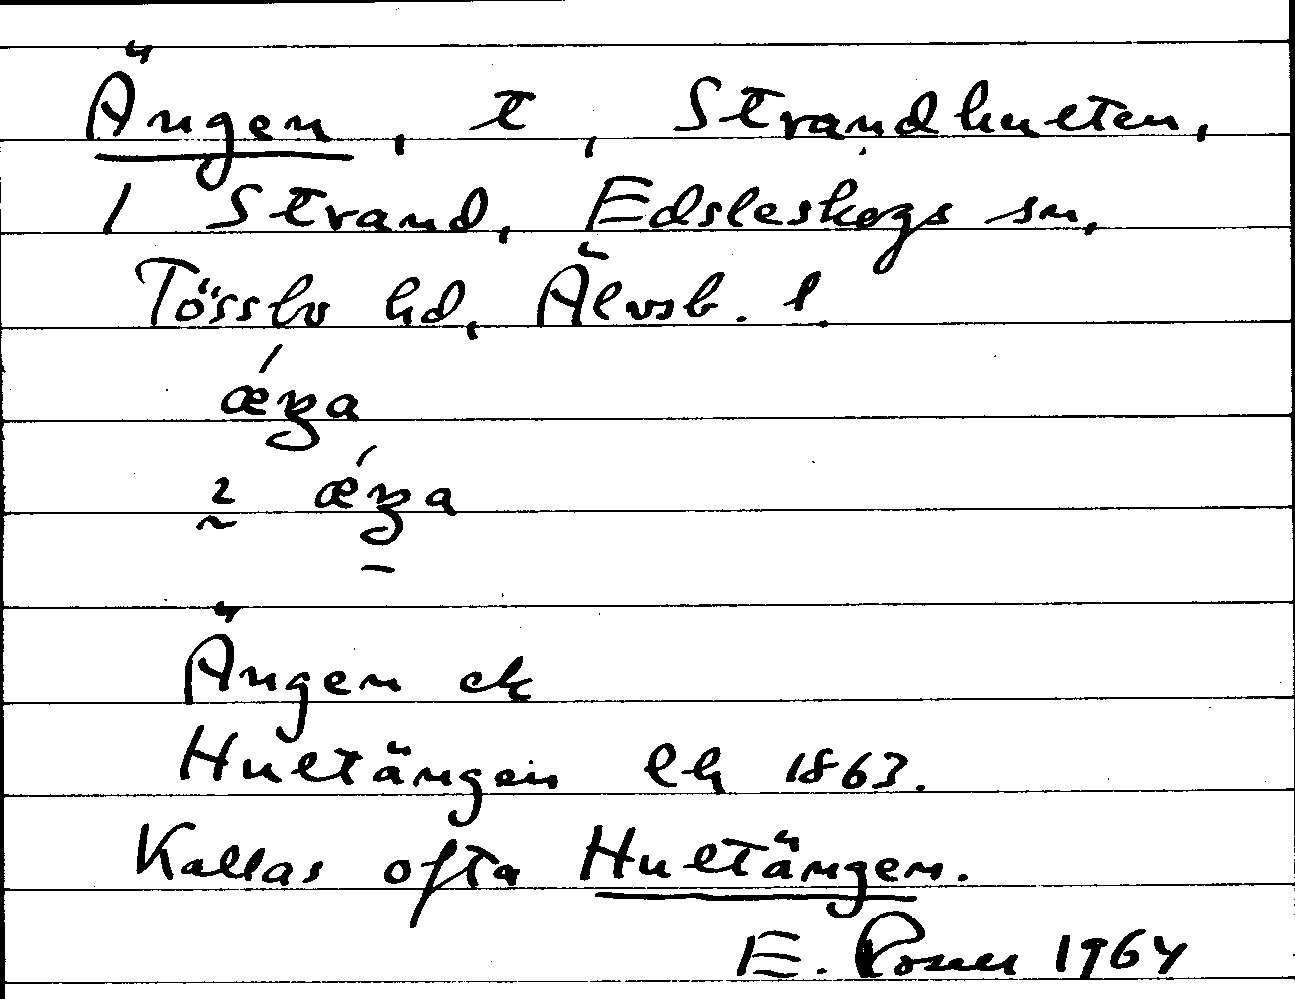 Ängen, t, Strandhulten,
1 Strand, Edsleskogs sn,
Tössbo hd, Älvsb. l.
ǽŋa
2 ǽŋa
Ängen ek
Hultängen lh 1863.
Kallas ofta Hultängen.
E. 1964